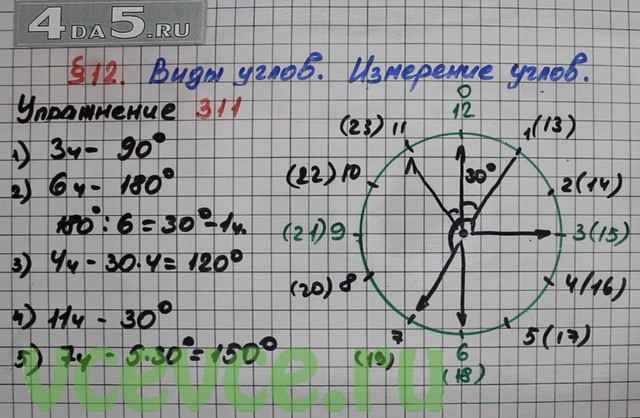 4DA5.RU
§12. Виды углов. Измерение углов.
Упражнение 311
1) 3ч - 90°
2) 6ч - 180°
180° : 6 = 30° - 1ч.
3) 4ч - 30·4 = 120°
4) 11ч - 30°
5) 7ч - 5·30° = 150°
0
12
(23) 11
1(13)
30°
(22) 10
2(14)
(21) 9
3(15)
(20) 8
4(16)
7
5(17)
(19)
6
(18)
vcevce.ru